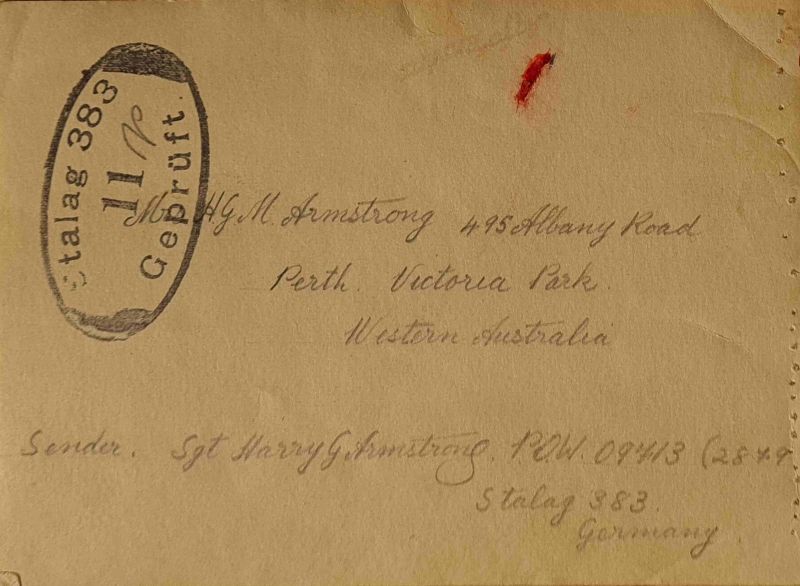 Stalag 383
11
Geprüft.
H G M. Armstrong 495 Albany Road
Perth. Victoria Park.
Western Australia
Sender. Sgt Harry G Armstrong. P.O.W. 09413 (
Stalag 383.
Germany.